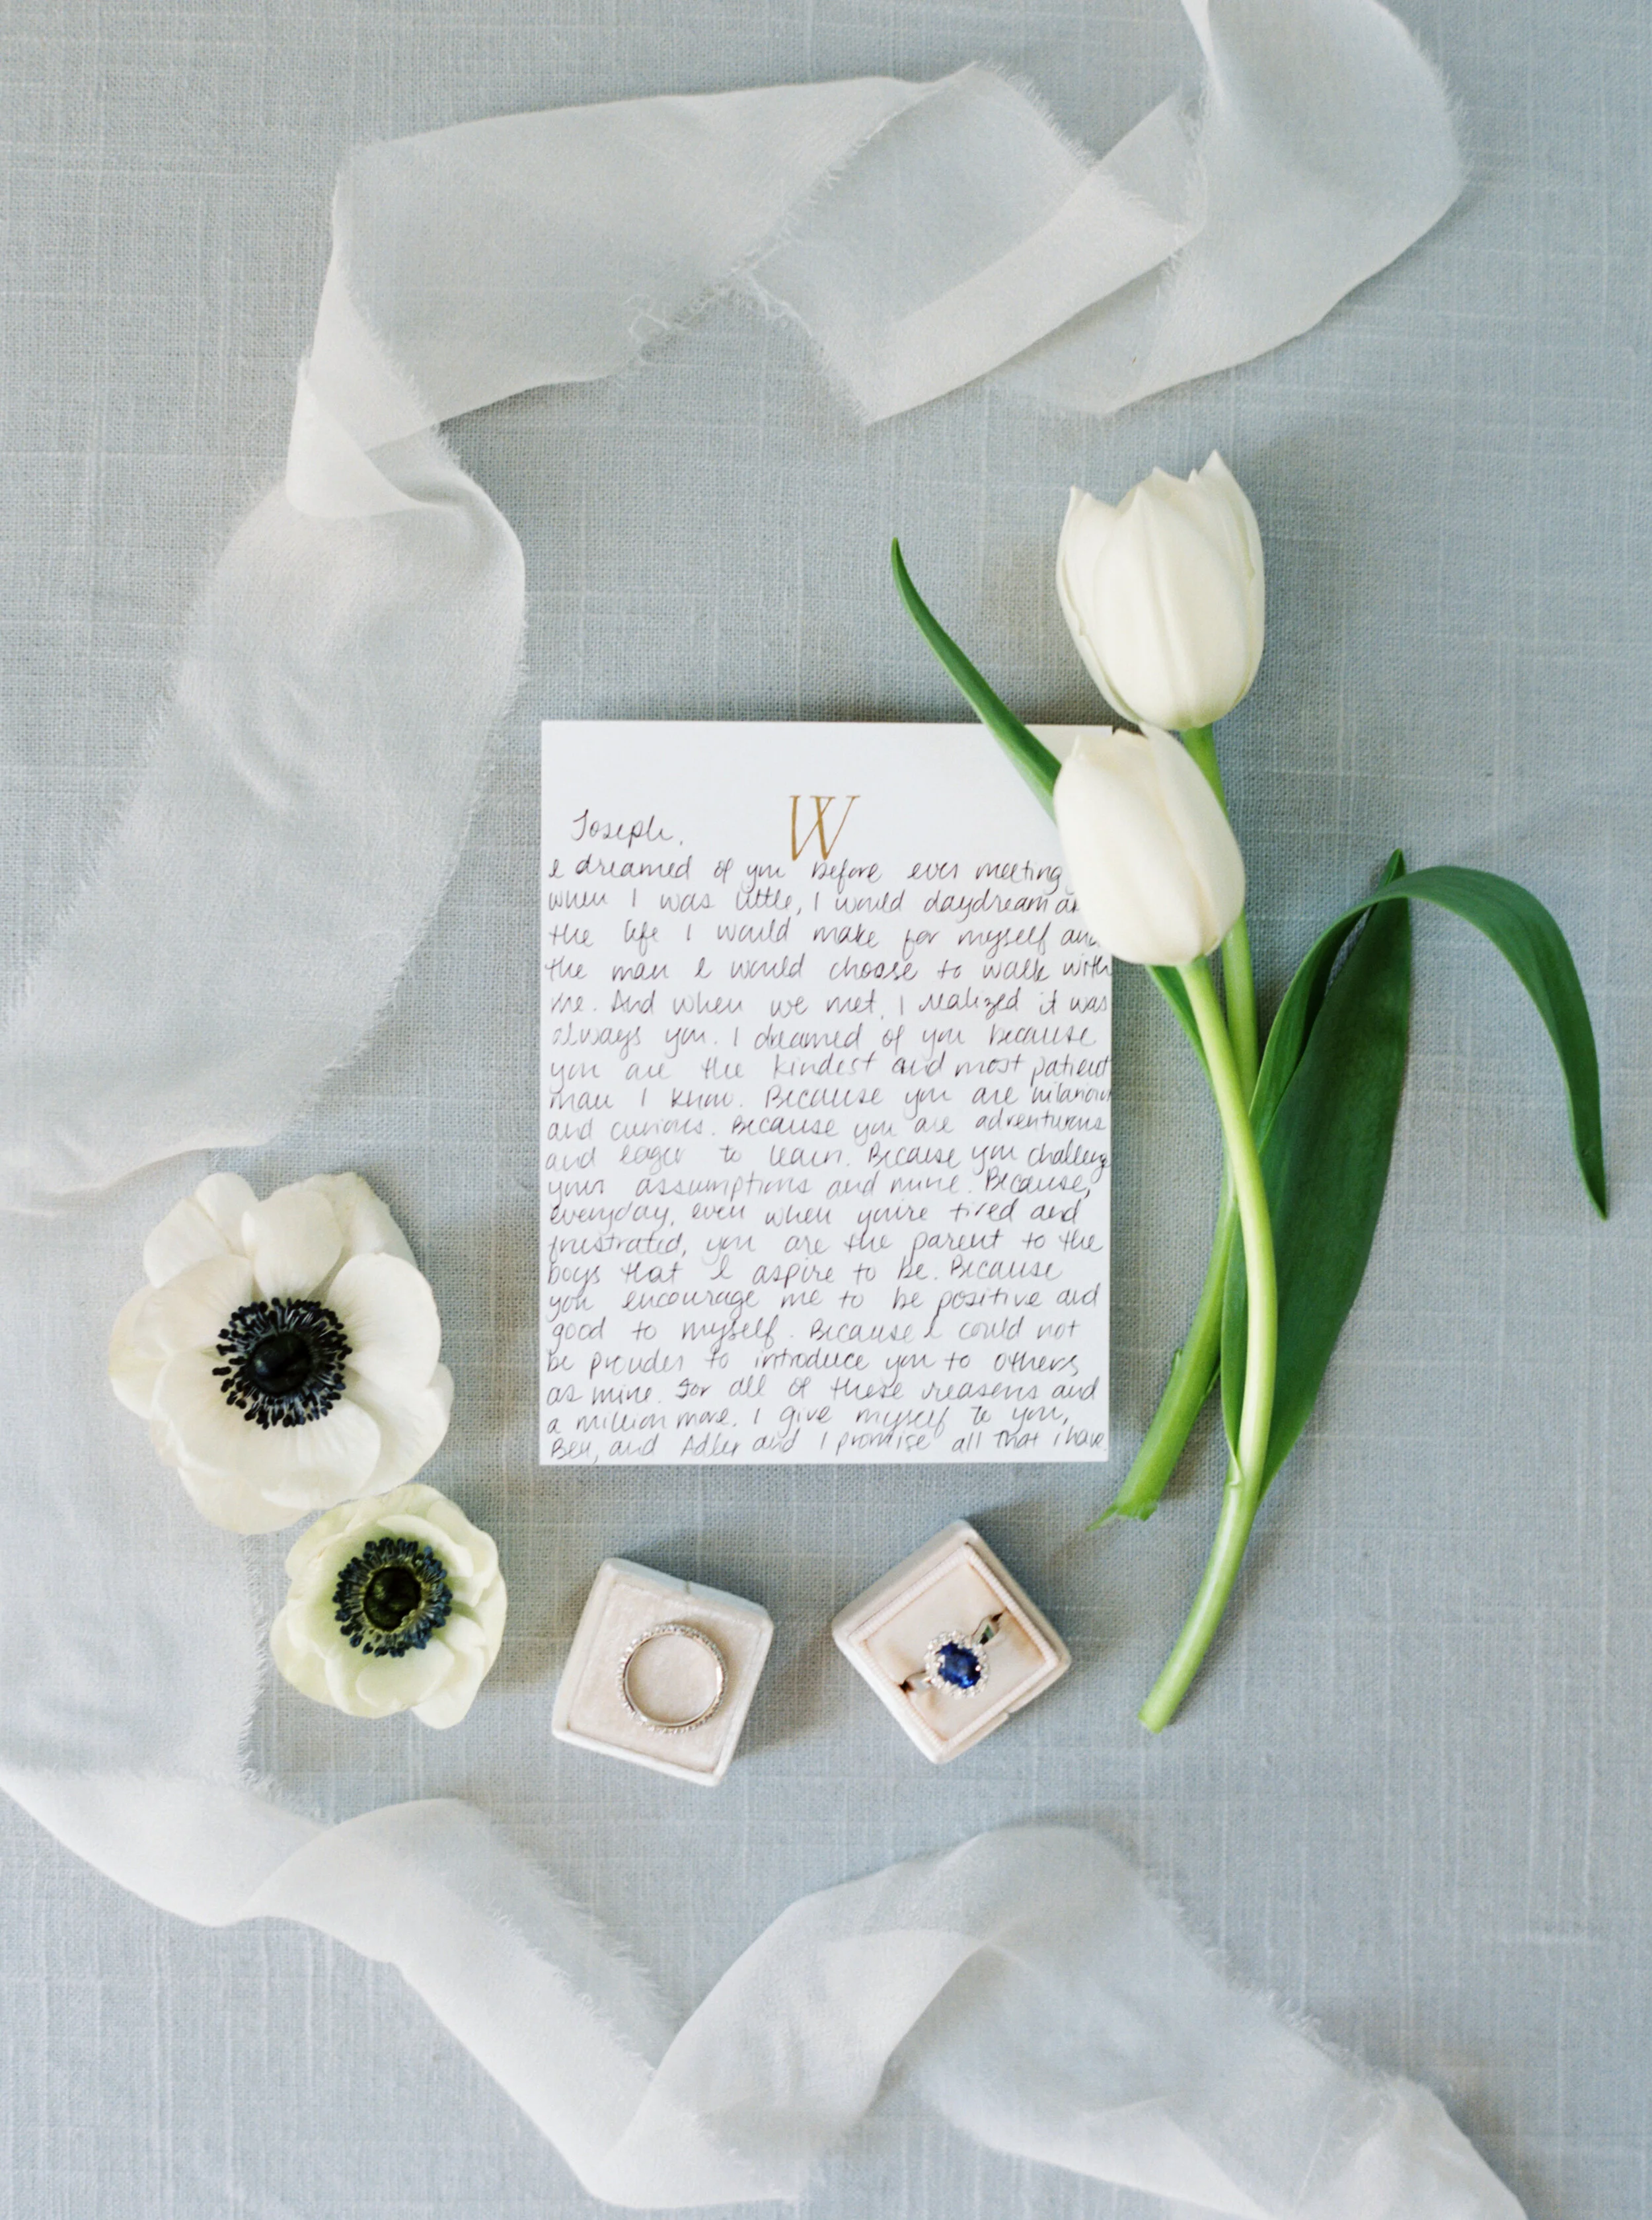 W
Joseph,
I dreamed of you before ever meeting
when I was little, I would daydream
the life I would make for myself and
the man I would choose to walk with
me. And when we met, I realized it was
always you. I dreamed of you because
you are the kindest and most patient
man I know. Because you are hilarious
and curious. Because you are adventurous
and eager to learn. Because you challenge
your assumptions and mine. Because,
everyday, even when you're tired and
frustrated, you are the parent to the
boys that I aspire to be. Because
you encourage me to be positive and
good to myself. Because I could not
be prouder to introduce you to others
as mine. For all of these reasons and
a million more. I give myself to you,
Ben, and Adler and I promise all that I have